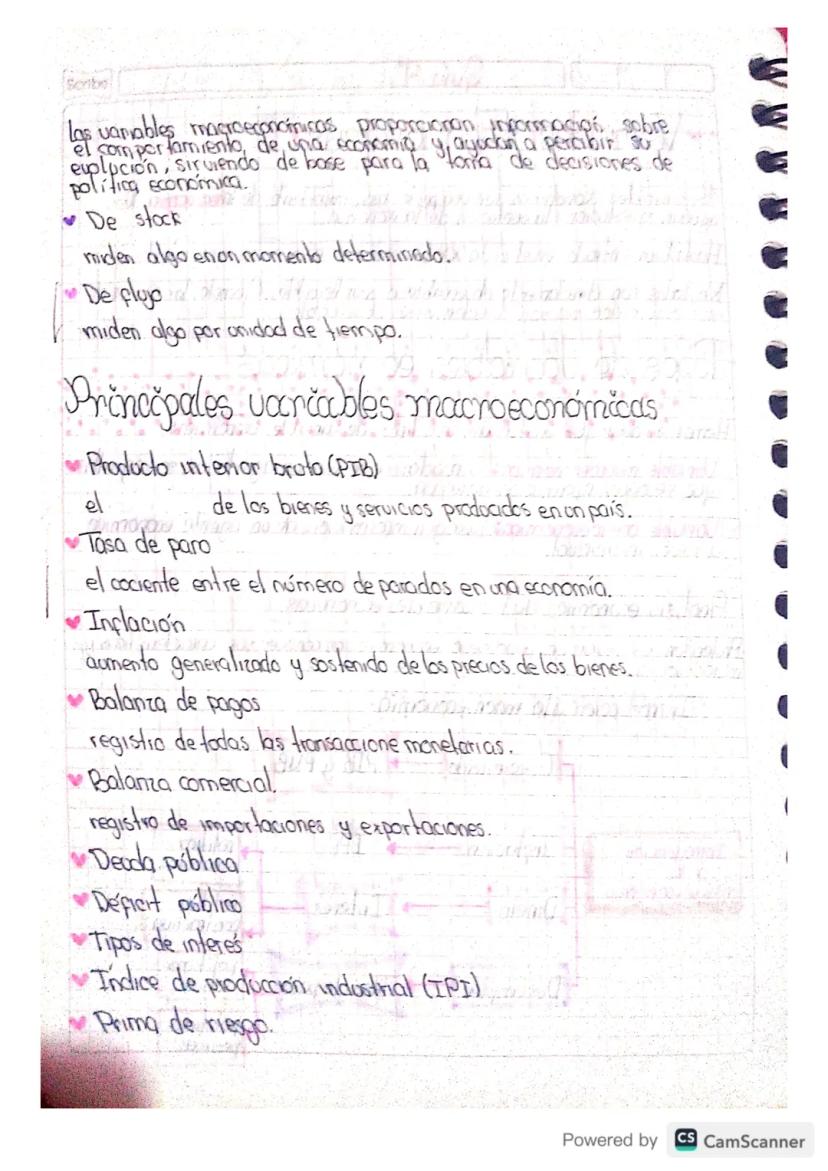 Scribe
las variables macroeconómicas proporcionan información sobre
el comportamiento de una economía y ayudan a percibir su
evolución, sirviendo de base para la toma de decisiones de
política económica.
De stock
miden algo en un momento determinado.
De flujo
miden algo por unidad de tiempo.
Principales variables macroeconómicas
Producto interior bruto (PIB)
el de los bienes y servicios producidos en un país.
Tasa de paro
el cociente entre el número de parados en una economía.
Inflación
aumento generalizado y sostenido de los precios de los bienes.
Balanza de pagos
registro de todas las transaccione monetarias.
Balanza comercial.
registro de importaciones y exportaciones.
Deuda pública
Déficit público
Tipos de interés
Índice de producción industrial (IPI)
Prima de riesgo.
Powered by CS CamScanner